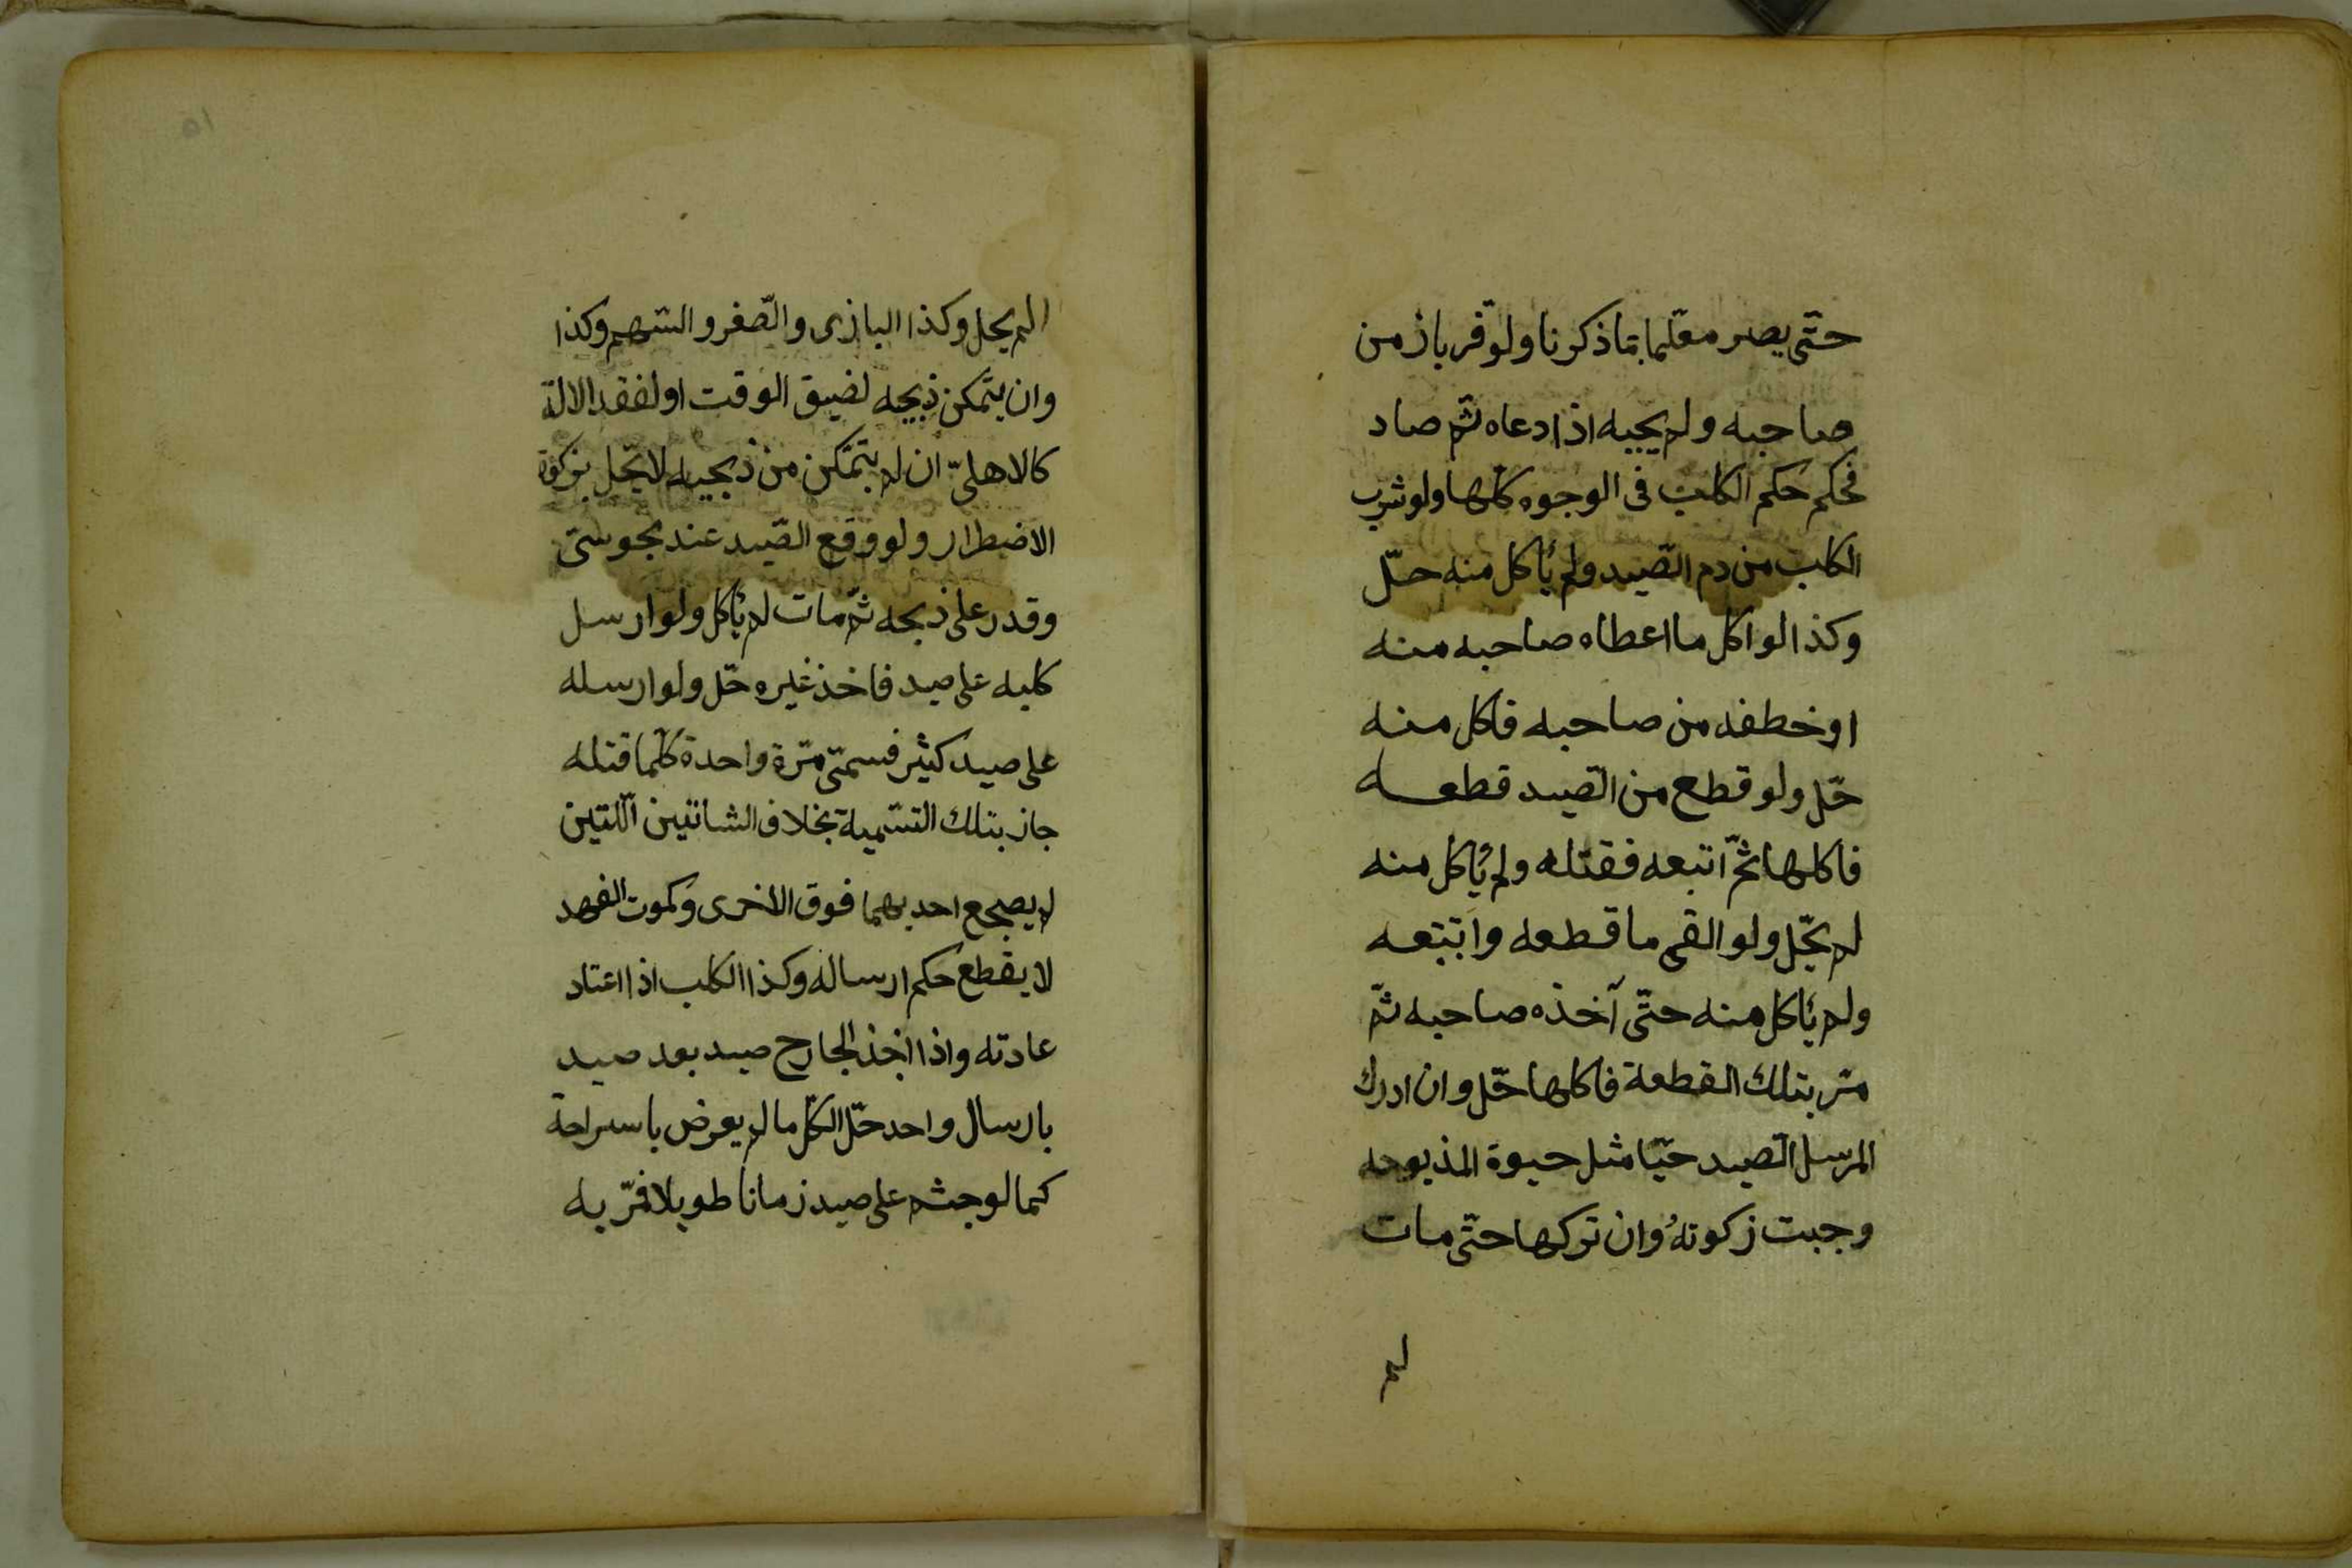 حتّى يصر معلّما بما ذكرنا ولو فرّ باز من
صاحبه ولم يجبه اذا دعاه ثمّ صاد
فحكم حكم الكلب فى الوجوه كلّها ولو شرب
الكلب من دم الصّيد ولم يأكل منه حلّ
وكذا لو اكل ما اعطاه صاحبه منه
او خطفه من صاحبه فاكل منه
حلّ ولو قطع من الصّيد قطعه
فاكلها ثمّ اتبعه فقتله ولم يأكل منه
لم يحلّ ولو القى ما قطعه واتبعه
ولم يأكل منه حتّى آخذه صاحبه ثمّ
مرّ بتلك القطعة فاكلها حلّ وان ادرك
المرسل الصّيد حيّا مثل حيوة المذبوحه
وجبت زكوتهُ وان تركها حتّى مات
لم
لم يحل وكذا البازى والصّقر والسّهم وكذا
وان يتمّكن ذبحه لضيق الوقت او لفقد الالة
كالاهلىّ ان لم يتمّكن من ذبحه لا يحّل بزكوة
الاضطرار ولو وقع الصّيد عند مجوسىّ
وقدر على ذبحه ثمّ مات لم يأكل ولو ارسل
كلبه على صيد فاخذ غيره حلّ ولو ارسله
على صيد كثير فسمّى مرّة واحدة كلّما قتله
جاز بتلك التسّمية بخلاف الشاتين اللّتين
لم يصجع احديهما فوق الاخرى وكموت الفهد
لا يقطع حكم ارساله وكذا الكلب اذا اعتاد
عادته واذا اخذ الجارح صيد بعد صيد
بارسال واحد حلّ الكلّ ما لم يعرض باسراحة
كما لو جثم على صيد زمانا طويلا فمرّ به
٥١